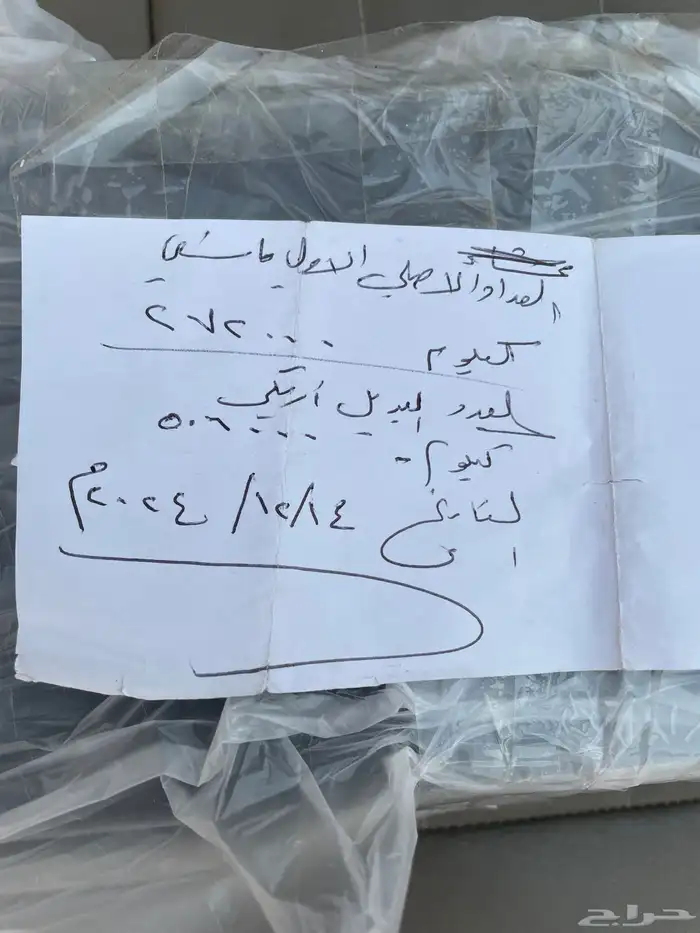 العداد الاصلي الاولي ماشي
٢٧٢٠٠٠
كيلوم
لعدد البديل أمريكي
٥٠٦٠٠٠
كيلوم
التاريخ ١٢/١٤/ ٢٠٢٤م
حراج